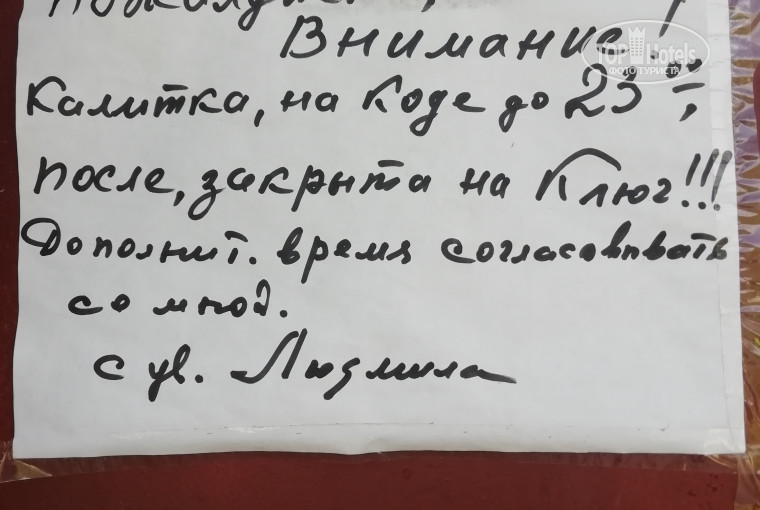 Пожалуйста, !
Внимание!
TOP Hotels
ФОТО ТУРИСТА
Калитка, на Коде до 23⁰⁰;
после, закрыта на Ключ!!!
Дополнит. время согласовывать
со мной.
с ув. Людмила